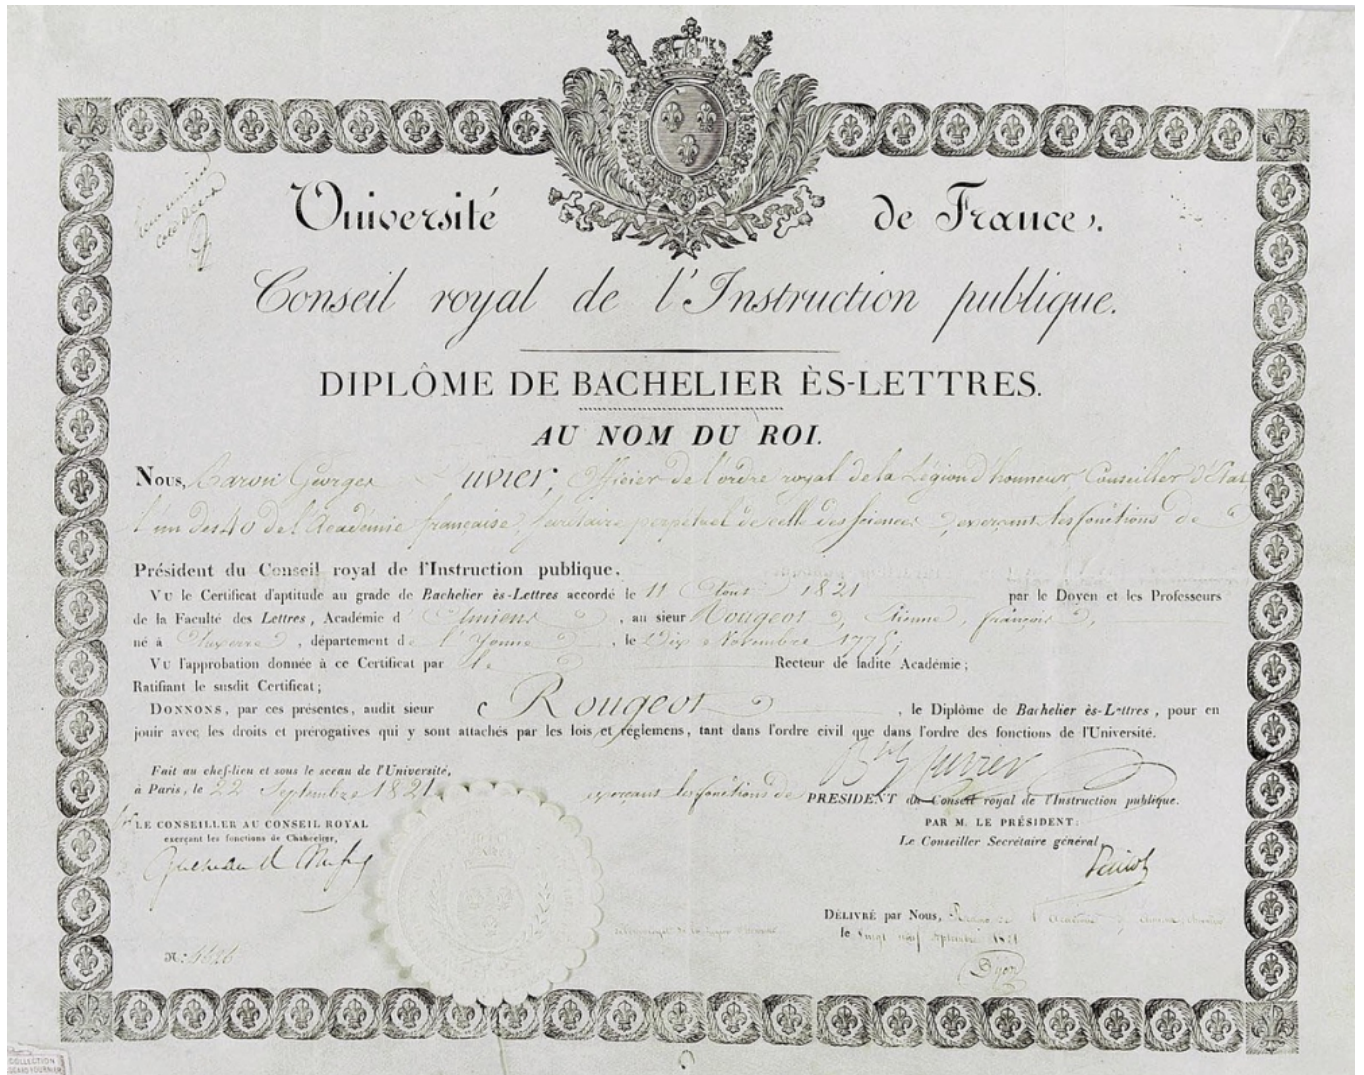 Université de France.
Conseil royal de l'Instruction publique.
DIPLÔME DE BACHELIER ÈS-LETTRES.
AU NOM DU ROI.
Nous, Baron Georges Cuvier, Officier de l'ordre royal de la Légion d'honneur Conseiller d'Etat
l'un des 40 de l'Académie française, secrétaire perpétuel de celle des sciences, exerçant les fonctions de
Président du Conseil royal de l'Instruction publique.
VU le Certificat d'aptitude au grade de Bachelier ès-Lettres accordé le 11 Août 1821 par le Doyen et les Professeurs
de la Faculté des Lettres, Académie d'Amiens, au sieur Rougeot, Etienne, françois,
né à Auxerre, département de l'Yonne, le Dix Novembre 1775,
VU l'approbation donnée à ce Certificat par le Recteur de ladite Académie;
Ratifiant le susdit Certificat;
DONNONS, par ces présentes, audit sieur Rougeot, le Diplôme de Bachelier ès-Lettres, pour en
jouir avec les droits et prérogatives qui y sont attachés par les lois et réglemens, tant dans l'ordre civil que dans l'ordre des fonctions de l'Université.
Fait au chef-lieu et sous le sceau de l'Université,
à Paris, le 22 Septembre 1821
exerçant les fonctions de PRESIDENT du Conseil royal de l'Instruction publique.
Bon Cuvier
LE CONSEILLER AU CONSEIL ROYAL
exerçant les fonctions de Chancelier,
PAR M. LE PRÉSIDENT:
Le Conseiller Secrétaire général,
DÉLIVRÉ par Nous, de l'Académie d
le vingt neuf septembre 1821
Dijon
N°.
COLLECTION